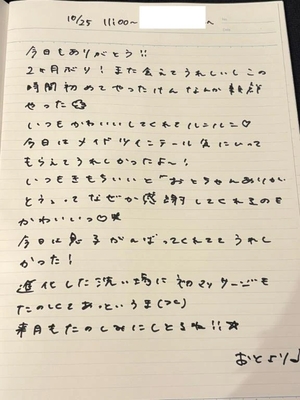 10/25 11:00~ へ
今日もありがとう!!
2ヶ月ぶり!また会えてうれしいしこの
時間初めてやったけんなんか新鮮
やった
いつもかわいいしてくれてルンルン♡
今日はメイドツインテール気にいって
もらえてうれしかったよ~!
いつもきもちいいと「おとちゃんありがい
とう」ってなぜか感謝してくれるのも
かわいいっ♡
今日は息子がんばってくれててうれし
かった!
進化した洗い場に初マッサージも
たのしくてあっというま(> <)
来月もたのしみにしとるね!!☆
おとより♪